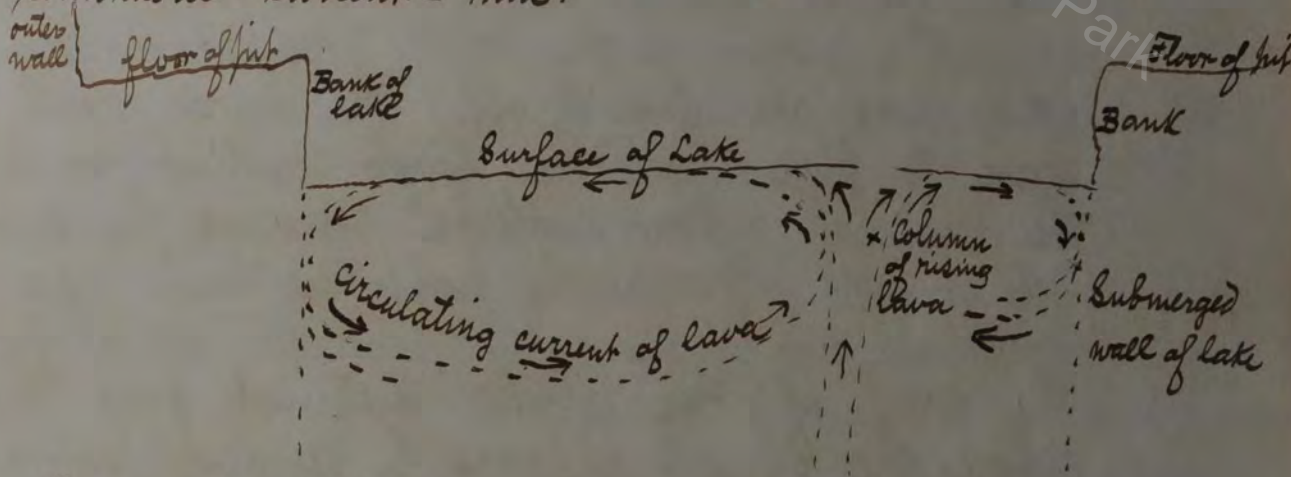 outer
wall
floor of pit
Bank of
lake
Surface of Lake
Floor of pit
Bank
Park
column
of rising
lava
circulating current of lava
Submerged
wall of lake